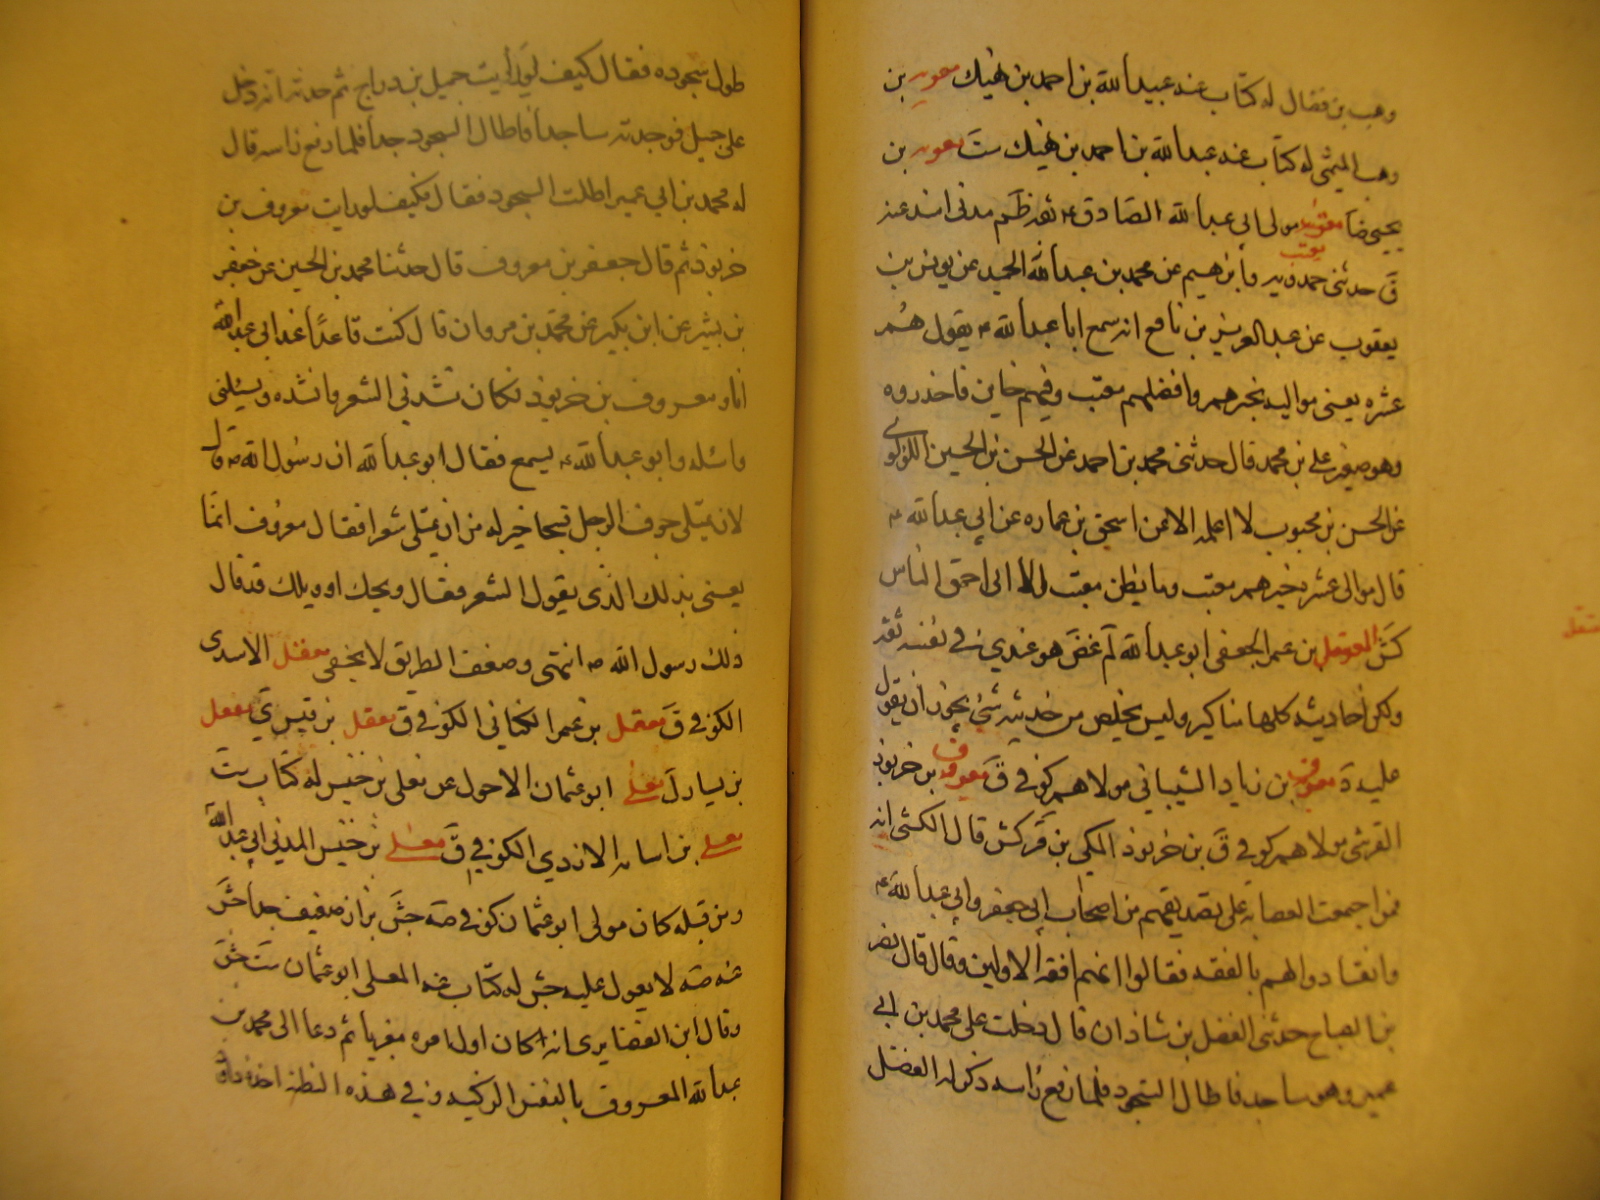 وهب بن فقال له كتاب عنه عبيد الله بن احمد بن نهيك معويه بن
وهب الميثمي له كتاب عنه عبد الله بن احمد بن نهيك ست معويه بن
يحيى ضا معتب مولى ابي عبد الله الصادق ع ثقه ظم مدني اسند عنه
معتب
ق حدثني حمدويه وابرهيم عن محمد بن عبد الله الحميد عن يونس بن
يعقوب عن عبد العزيز بن نافع انه سمع ابا عبد الله ع يقول هم
عشره يعني مواليه بخيرهم وافضلهم معتب وفيهم خاين فاحذروه
وهو صغير علي بن محمد قال حدثني محمد بن احمد عن الحسن بن الحسين اللؤلؤي
عن الحسن بن محبوب لا اعلمه الا عن اسحق بن عماره عن ابي عبد الله ع
قال موالى عشر بخيرهم معتب وما يظن معتب الا الى احمق الناس
كش المعقل بن عمر الجعفي ابو عبد الله لم غض هو عندي في نفسه ثقه
ولكن احاديثه كلها مناكير وليس يخلص من حديثه شئ يجوز ان يقول
عليه د معروف بن زياد الشيباني مولاهم كوفي ق معروف بن خربوذ
القرشي مولاهم كوفي ق بن خربوذ المكي بن قر كش قال الكشي انه
ممن اجمعت العصابه على تصديقهم من اصحاب ابي جعفر وابي عبد الله ع
وانقادوا لهم بالفقه فقالوا انهم افقه الاولين وقال قال نصر
بن الصباح حدثني الفضل بن شاذان قال دخلت على محمد بن ابي
عمير وهو ساجد فاطال السجود فلما رفع راسه ذكر له الفضل
طول سجوده فقال كيف لو رأيت جميل بن دراج ثم حدثه انه دخل
على جميل فوجدته ساجدا فاطال السجود جدا فلما رفع راسه قال
له محمد بن ابي عمير اطلت السجود فقال فكيف لو رايت معروف بن
خربوذ ثم قال جعفر بن معروف قال حدثنا محمد بن الحسين عن جعفر
بن بشير عن ابن بكير عن محمد بن مروان قال كنت قاعدا عند ابي عبد الله
انا ومعروف بن خربوذ فكان ينشدني الشعر وانشده ويسئلني
واسئله وابو عبد الله ع يسمع فقال ابو عبد الله ان رسول الله ص قال
لان يمتلي جوف الرجل قيحا خير له من ان يمتلي شعرا فقال معروف انما
يعني بذلك الذي يقول الشعر فقال ويحك او ويلك قد قال
ذلك رسول الله ص انتهى وضعف الطريق لا يخفى معقل الاسدي
الكوفي ق معقل بن عمر الكناني الكوفي ق معقل بن قيس ي معقل
بن يسار ل معلى ابو عثمان الاحول عن معلى بن خنيس له كتاب ست
معلى بن اسامه الازدي الكوفي ق معلى بن خنيس المدني ابي عبد الله
ومن قبله كان مولى ابو عثمان كوفي صه جش بزاز ضعيف جدا جش
عنه صه لا يعول عليه جش له كتاب عنه المعلى ابو عثمان ست جش
وقال ابن الغضايري انه كان اول امره مغيريا ثم دعا الى محمد بن
عبد الله المعروف بالنفس الزكيه وفي هذه الظنه اخذه داود